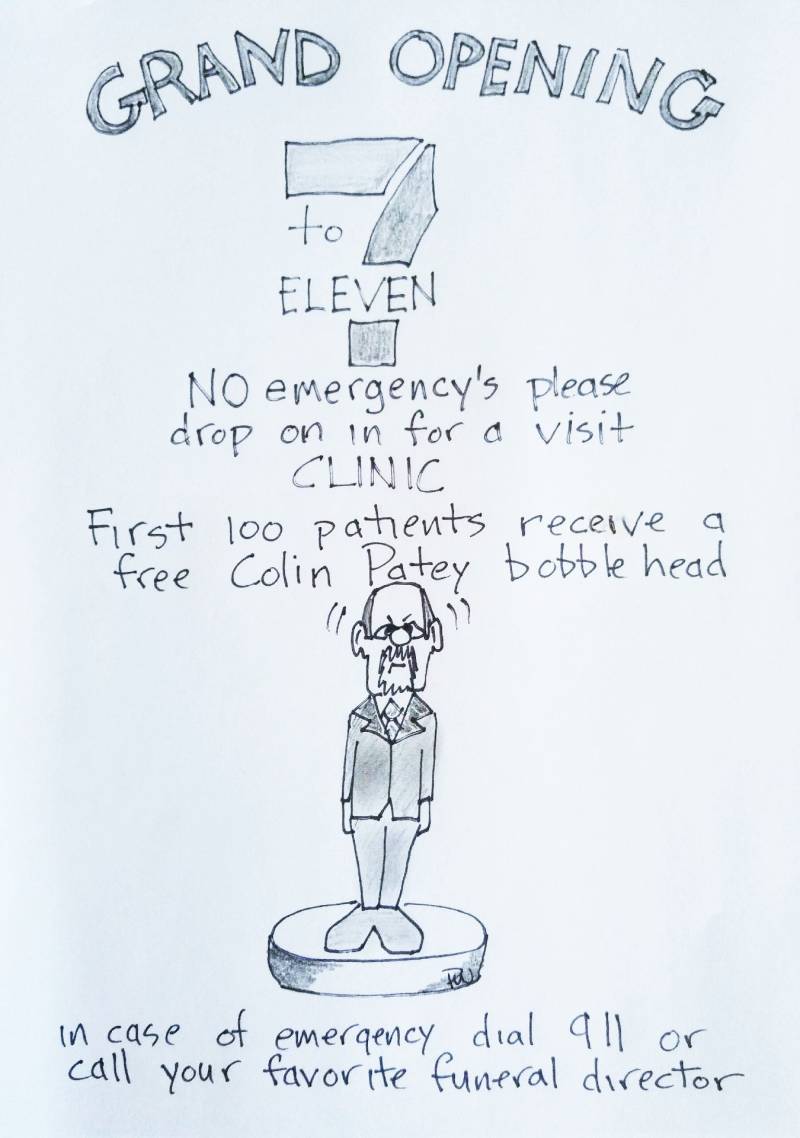 GRAND OPENING
7
to
ELEVEN
NO emergency's please
drop on in for a visit
CLINIC
First 100 patients receive a
free Colin Patey bobble head
in case of emergency dial 911 or
call your favorite funeral director